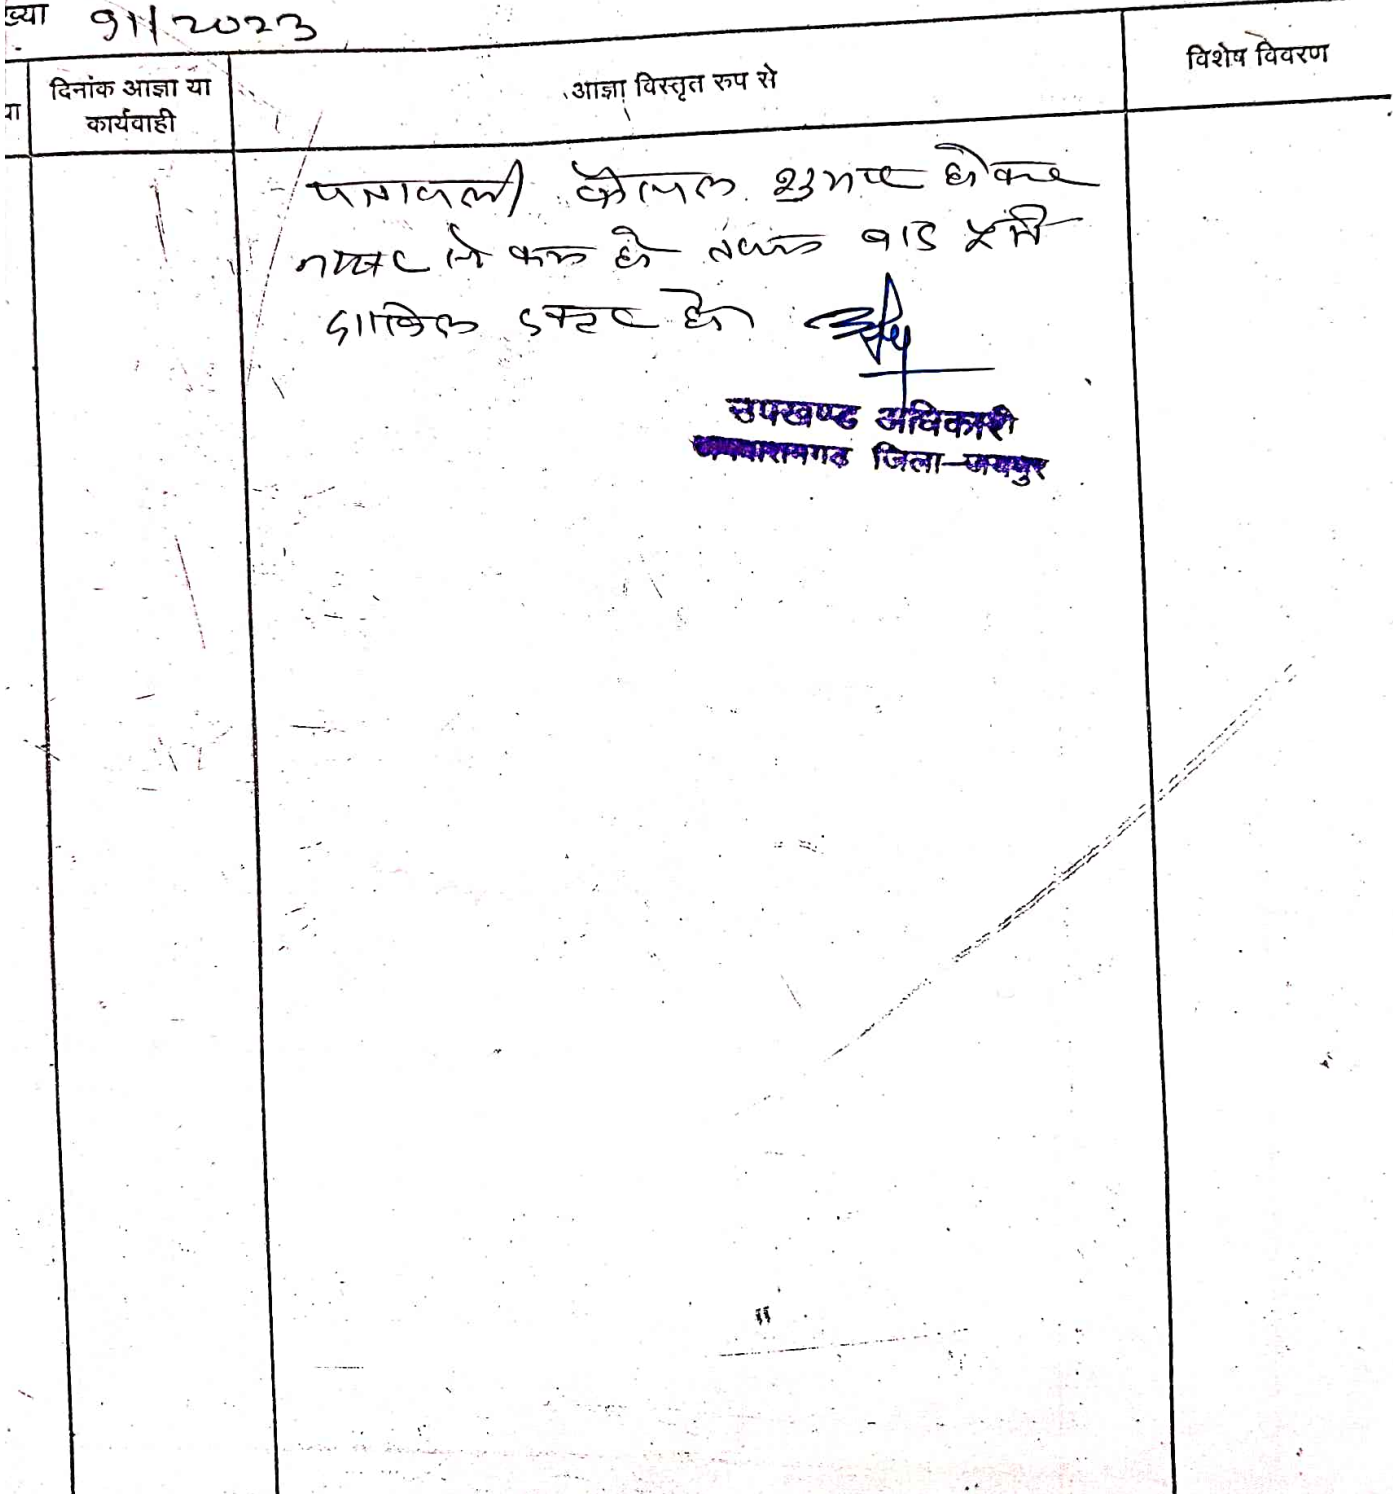 ख्या 91/2023
या
दिनांक आज्ञा या
कार्यवाही
आज्ञा विस्तृत रुप से
विशेष विवरण
पत्रावली फैसल शुमार होकर
नम्बर से कम हो बाद
दाखिल दफ्तर हो
उपखण्ड अधिकारी
जिला-जयपुर